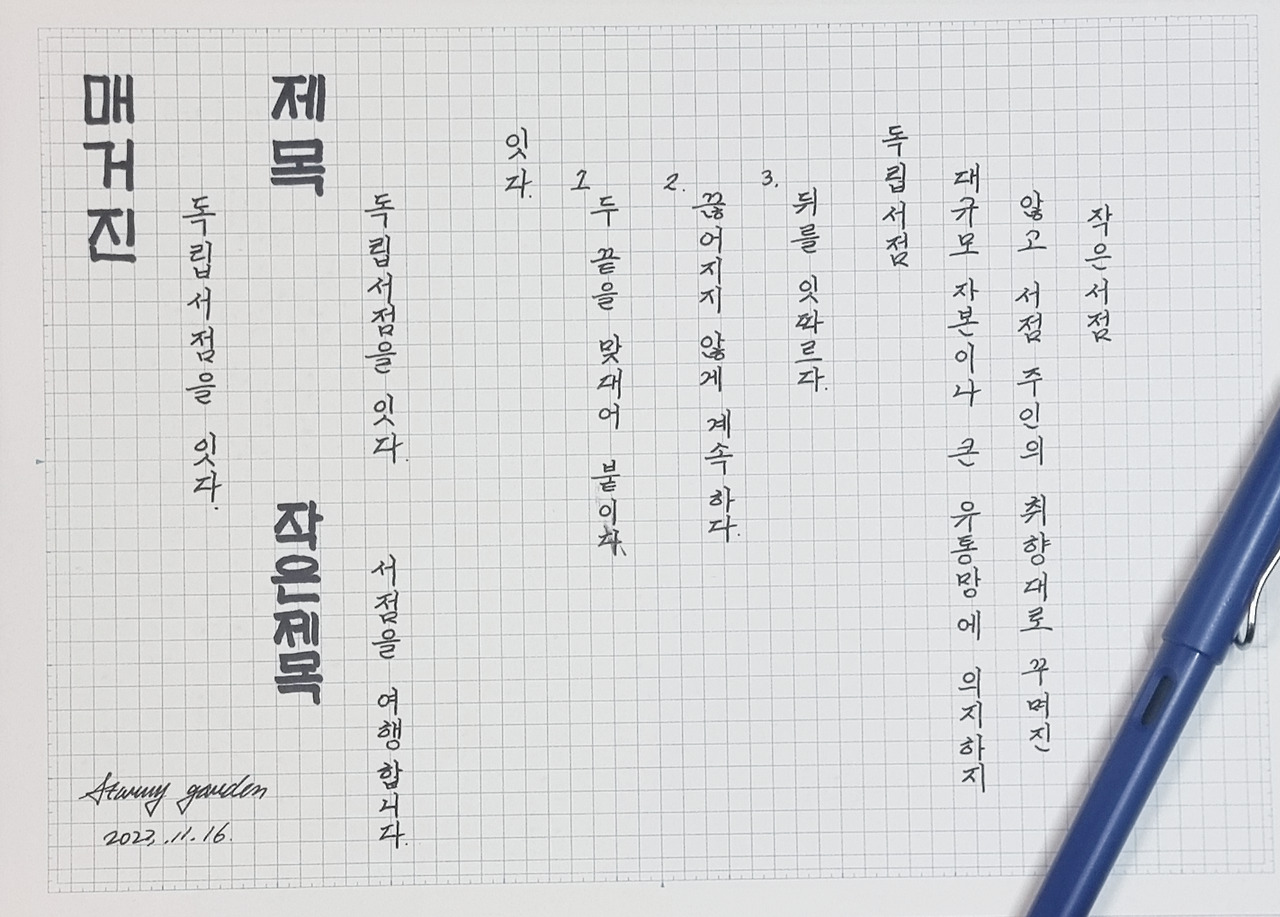 매거진
독립서점을 잇다.
제목
독립서점을 잇다.
작은제목
서점을 여행합니다.
잇다.
1 두 끝을 맞대어 붙이다.
2. 끊어지지 않게 계속 하다.
3. 뒤를 잇따르다.
독립서점
대규모 자본이나 큰 유통망에 의지하지
않고 서점 주인의 취향대로 꾸며진
작은 서점
Starry garden
2023.11.16.